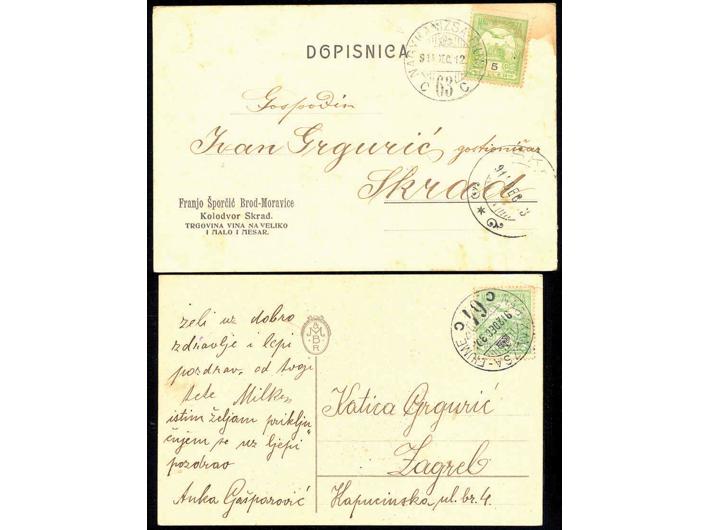 DOPISNICA
911 DEC. 12
63
C C
5
Gospodin
Ivan Grgurić gostioničar
Skrad
Franjo Šporčić Brod-Moravice
Kolodvor Skrad.
TRGOVINA VINA NA VELIKO
I MALO I MESAR.
želi uz dobro
zdravlje i lepi
pozdrav, od tvoje
tete Milke,
istim željam priklju„
čujem se uz ljepi
pozdrav
Anka Gašparović
MBR
-FIUME
67
C C
Katica Grgurić
Zagreb
Kapucinska ul. br. 4.